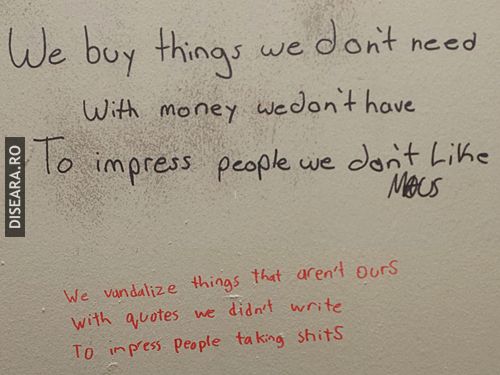 We buy things we don't need
With money we don't have
To impress people we don't like
DISEARA.RO
We vandalize things that aren't ours
With quotes we didn't write
To impress people taking shits